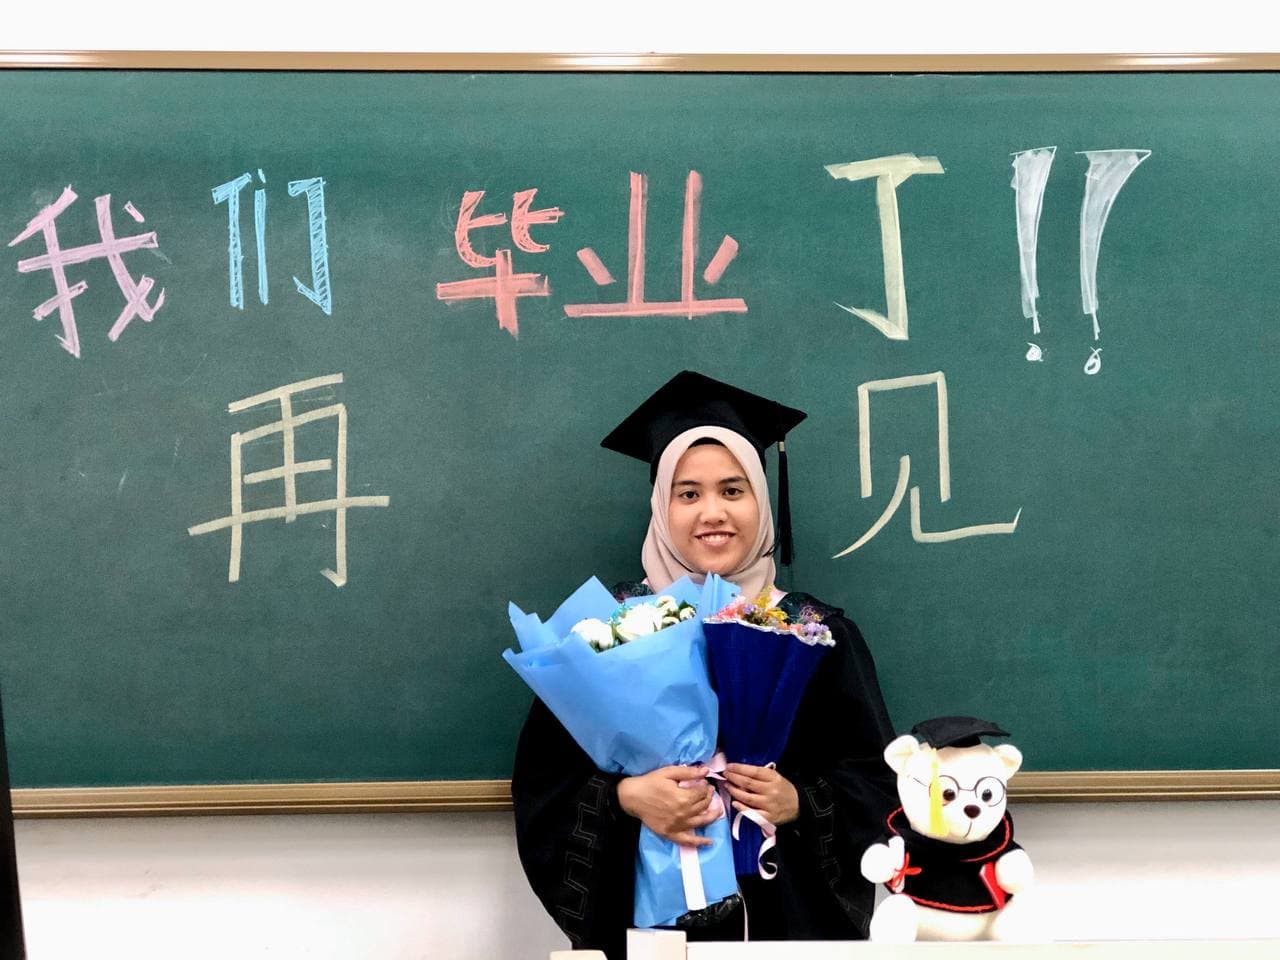 我们毕业了!!
再见